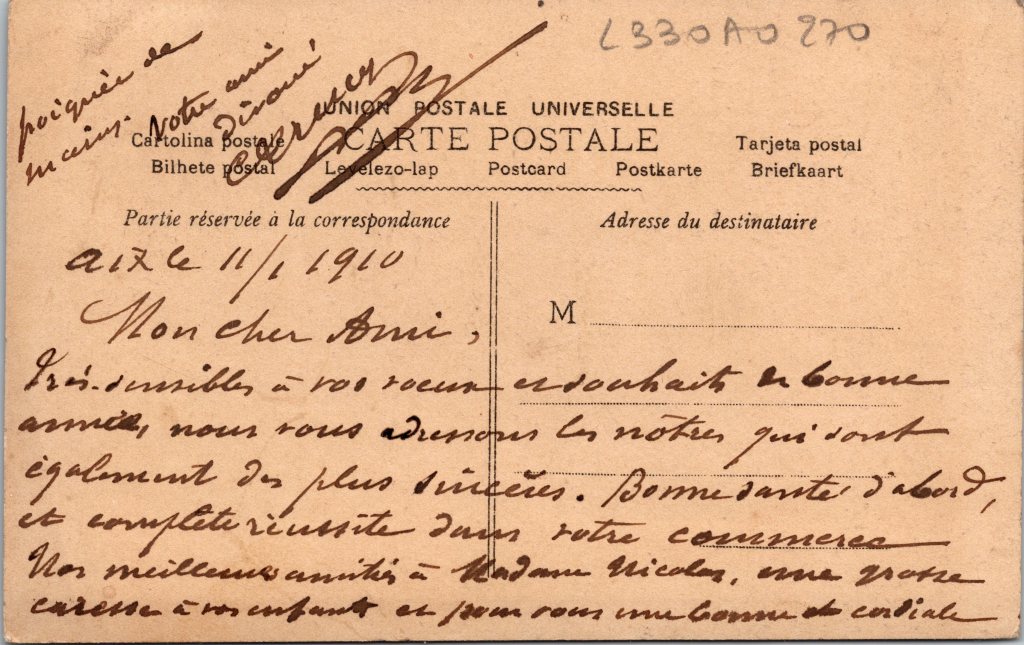 L330A0 270
poignée de
mains.
Votre ami
dévoué
UNION POSTALE UNIVERSELLE
CARTE POSTALE
Cartolina postale
Tarjeta postal
Bilhete postal
Levelezo-lap
Postcard
Postkarte
Briefkaart
Partie réservée à la correspondance
Adresse du destinataire
M
aix le 11/1 1910
Mon cher Ami,
Très sensibles à vos voeux et souhaits de bonne
année, nous vous adressons les nôtres qui sont
également des plus sincères. Bonne santé d'abord,
et complète réussite dans votre commerce
Nos meilleures amitiés à Madame Nicolas, une grosse
caresse à vos enfants et pour vous une bonne et cordiale